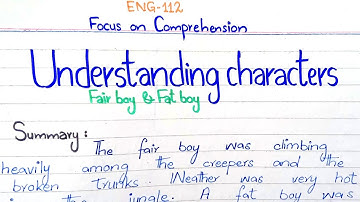 ENG-112
Focus on Comprehension
Understanding characters
Fair boy & Fat boy
Summary: The fair boy was climbing
heavily among the creepers and the
broken trunks. Weather was very hot
the jungle. A fat boy was